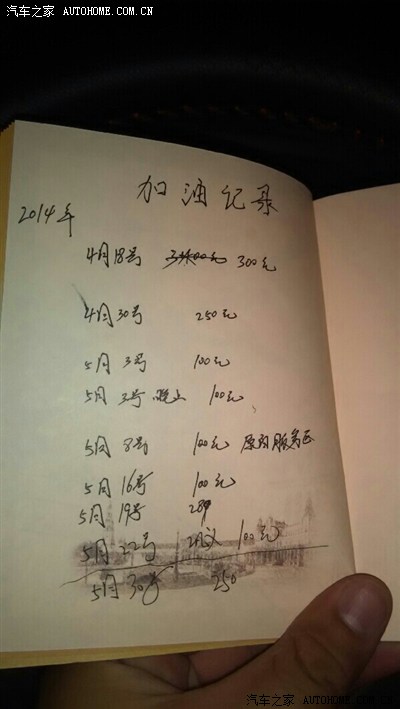 汽车之家 AUTOHOME.COM.CN
加油记录
2014年
4月18号 300元
4月30号 250元
5月3号 100元
5月3号 晚上 100元
5月8号 100元 服务区
5月16号 100元
5月19号
5月22号 100元
5月30号 250
汽车之家 AUTOHOME.COM.CN